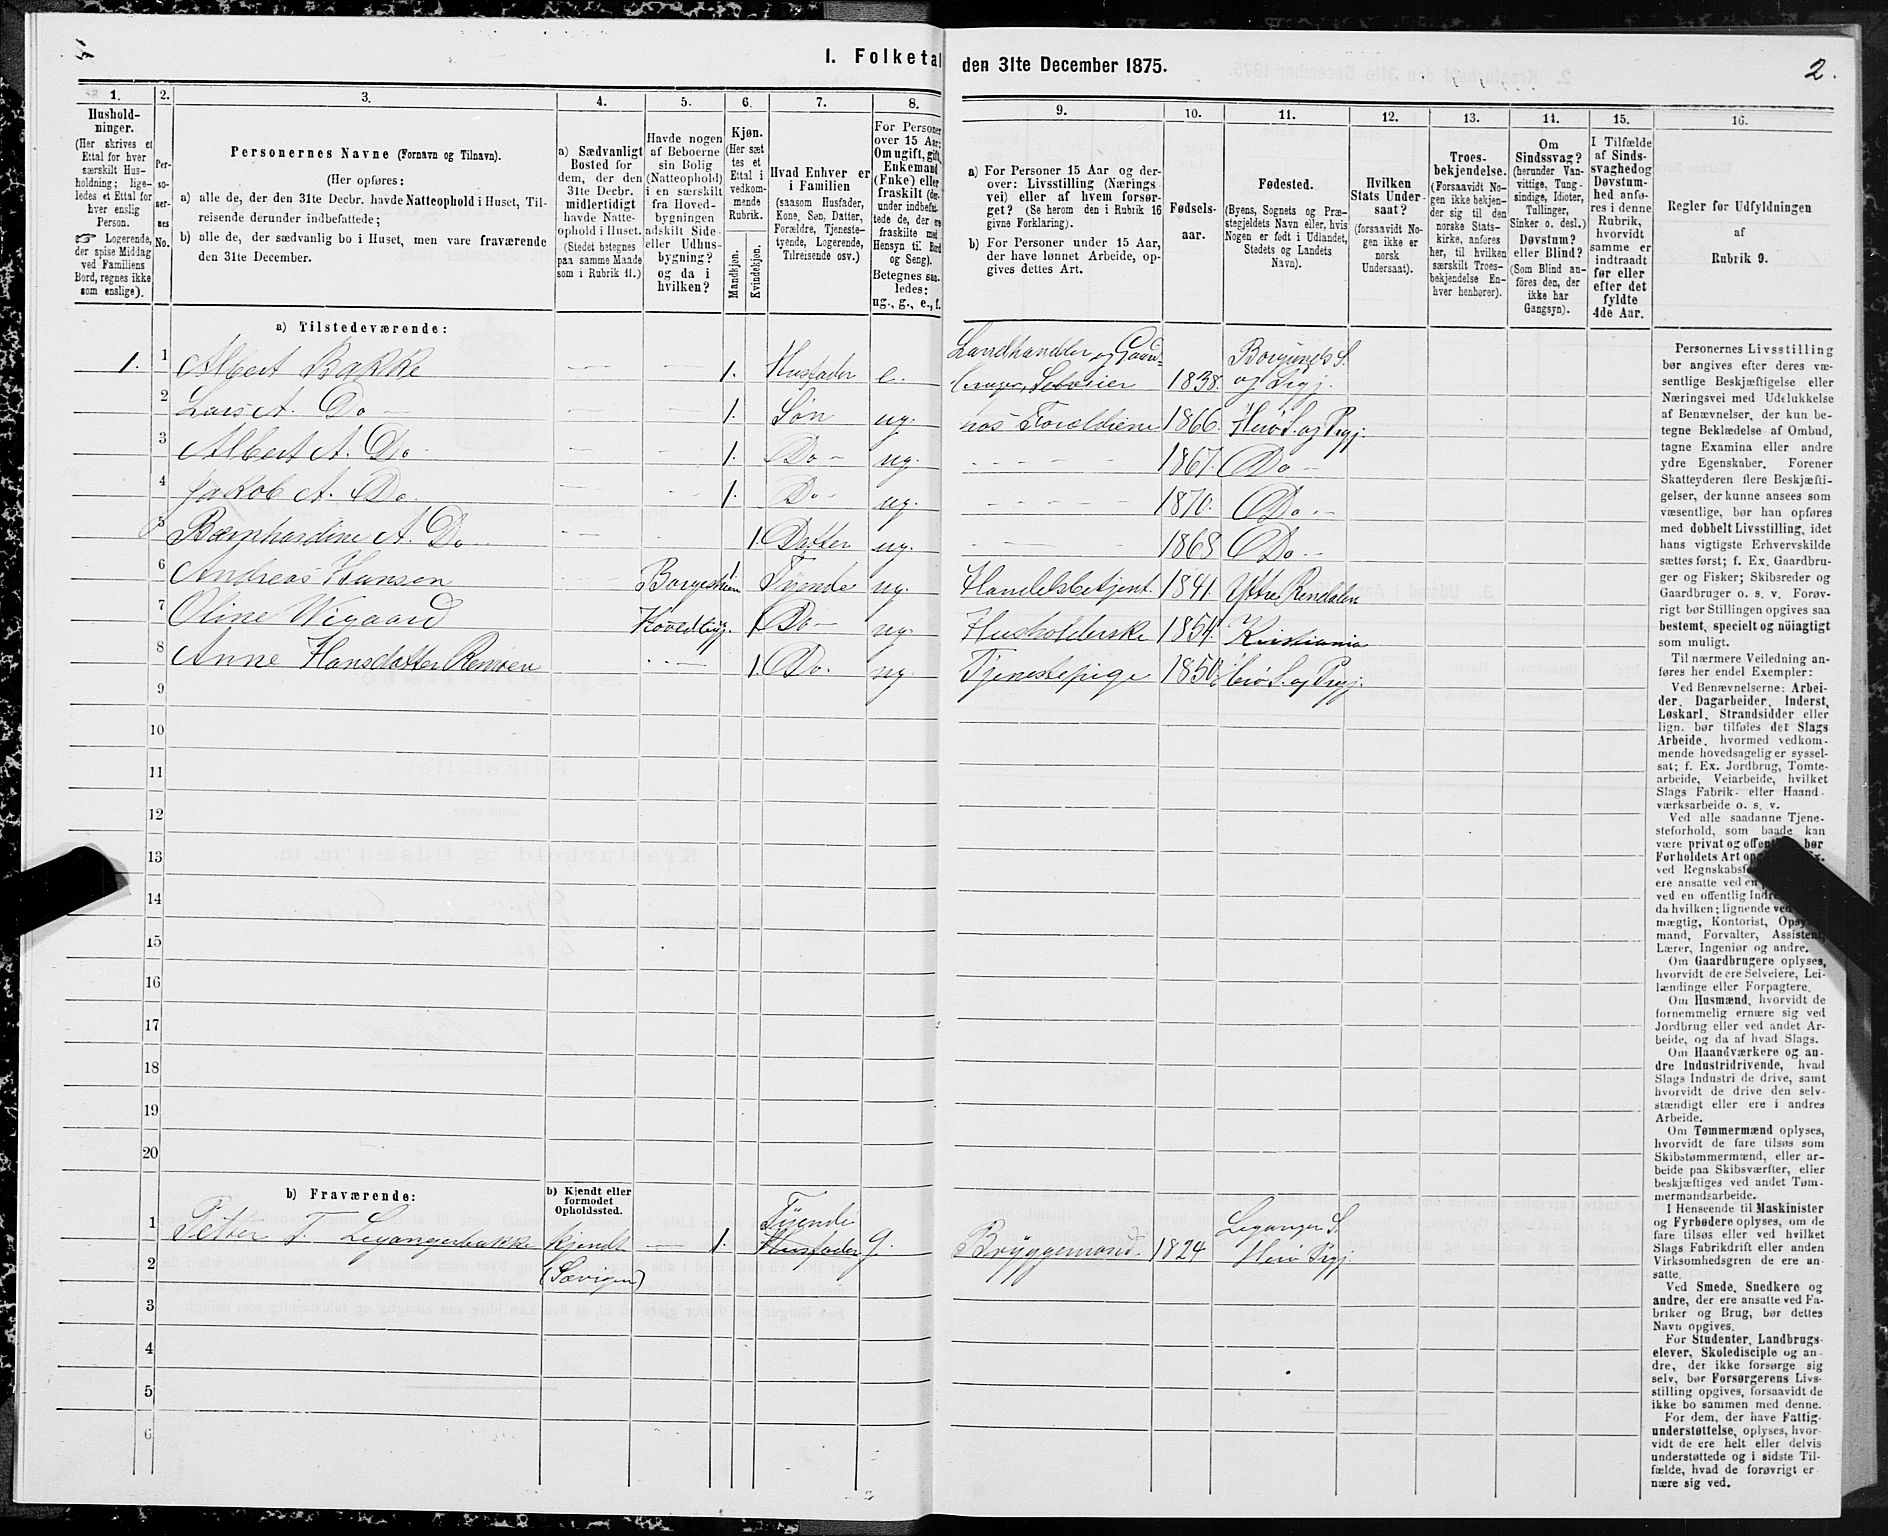 I. Folketal den 31te December 1875.
2.
1.
Hushold-
ninger.
(Her skrives et
Ettal for hver
særskilt Hus-
holdning; lige-
ledes et Ettal for
hver enslig
Person.
Logerende,
der spise Middag
ved Familiens
Bord, regnes ikke
som enslige).
2.
Per-
so-
ner-
nes
No.
3.
Personernes Navne (Fornavn og Tilnavn).
(Her opføres:
a) alle de, der den 31te Decbr. havde Natteophold i Huset, Til-
reisende derunder indbefattede;
b) alle de, der sædvanlig bo i Huset, men vare fraværende
den 31te December.
4.
a) Sædvanligt
Bosted for
dem, der den
31te Decbr.
midlertidigt
havde Natte-
ophold i Huset.
(Stedet betegnes
paa samme Maade
som i Rubrik 11.)
5.
Havde nogen
af Beboerne
sin Bolig
(Natteophold)
i en særskilt
fra Hoved-
bygningen
adskilt Side-
eller Udhus-
bygning?
og da i
hvilken?
6.
Kjøn.
(Her sæt-
tes et
Ettal i
vedkom-
mende
Rubrik.
Mandkjøn.
Kvindekjøn.
7.
Hvad Enhver er
i Familien
(saasom Husfader,
Kone, Søn, Datter,
Forældre, Tjeneste-
tyende, Logerende,
Tilreisende osv.)
8.
For Personer
over 15 Aar:
Om ugift, gift,
Enkemand
(Enke) eller
fraskilt (der-
under indbefat-
tede de, der ere
fraskilte med
Hensyn til Bord
og Seng).
Betegnes saa-
ledes:
ug., g., e., f.
9.
a) For Personer 15 Aar og der-
over: Livsstilling (Nærings-
vei) eller af hvem forsør-
get? (Se herom den i Rubrik 16
givne Forklaring).
b) For Personer under 15 Aar,
der have lønnet Arbeide, op-
gives dettes Art.
10.
Fødsels-
aar.
11.
Fødested.
(Byens, Sognets og Præ-
stegjeldets Navn eller, hvis
Nogen er født i Udlandet,
Stedets og Landets
Navn).
12.
Hvilken
Stats Under-
saat?
(forsaavidt No-
gen ikke er
norsk
Undersaat).
13.
Troes-
bekjendelse.
(Forsaavidt No-
gen ikke bekjen-
der sig til den
norske Stats-
kirke, anføres
her, til hvilken
særskilt Troes-
bekjendelse En-
hver henhører).
14.
Om
Sindssvag?
(herunder Van-
vittige, Tung-
sindige, Idioter,
Tullinger,
Sinker o. desl.)
Døvstum?
eller Blind?
(Som Blind an-
føres den, der
ikke har
Gangsyn).
15.
I Tilfælde
af Sinds-
svaghed og
Døvstum-
hed anfø-
res i denne
Rubrik,
hvorvidt
samme er
indtraadt
før eller
efter det
fyldte
4de Aar.
16.
Regler for Udfyldningen
af
Rubrik 9.
a) Tilstedeværende:
1. 1 Albert Bakke — — 1. Husfader e. Landhandler og Gaard-
bruger, Selveier 1838. Borgunds S.
og Prgj.
2 Lars A. Do — — — 1. Søn ug. hos Forældrene 1866. Herø S. og Prgj.
3 Albert A. Do — — 1. Do — ug. — — — 1867. Do —
4 Jakob A. Do — — 1. Do — ug. — — — 1870. Do —
5 Bernhardine A. Do — — 1 Datter ug. — — — 1868 Do —
6 Andreas Hansen — Borgestuen 1 Tyende ug. Handelsbetjent. 1841. Yttre Rendalen
7 Oline Wigaard Hovedbyg. 1 Do — ug. Husholderske 1854. Kristiania
8 Anne Hansdatter Remøen — — 1. Do. ug. Tjenestepige 1850 Herø S. og Prgj.
9
10
11
12
13
14
15
16
17
18
19
20
b) Fraværende:
b) Kjendt eller
formodet
Opholdssted.
1 Petter T. Leganger­bakke kjendt — 1. Tyende
Husfader g. Bryggemand. 1824 Leganger S.
Herø Prgj.
2 (Sævigen)
3
4
5
6
Personernes Livsstilling
bør angives efter deres væ-
sentlige Beskjæftigelse eller
Næringsvei med Udelukkelse
af Benævnelser, der kun be-
tegne Beklædelse af Ombud,
tagne Examina eller andre
ydre Egenskaber. Forener
Skatteyderen flere Beskjæfti-
gelser, der kunne ansees som
væsentlige, bør han opføres
med dobbelt Livsstilling, idet
hans vigtigste Erhvervskilde
sættes først; f. Ex. Gaardbru-
ger og Fisker; Skibsreder og
Gaardbruger o. s. v. Forøv-
rigt bør Stillingen opgives saa
bestemt, specielt og nøiagtigt
som muligt.
Til nærmere Veiledning an-
føres her endel Exempler:
Ved Benævnelserne: Arbei-
der, Dagarbeider, Inderst,
Løskarl, Strandsidder eller
lign. bør tilføies det Slags
Arbeide, hvormed vedkom-
mende hovedsagelig er syssel-
sat; f. Ex. Jordbrug, Tomte-
arbeide, Veiarbeide, hvilket
Slags Fabrik- eller Haand-
værksarbeide o. s. v.
Ved alle saadanne Tjene-
steforhold, som baade kan
være privat og offen bør
Forholdets Art op Ex.
ved Regnskabsf
ere ansatte ved en
ved en offentlig Indre
da hvilken; lignende ved
mægtig, Kontorist, Opsy
mand, Forvalter, Assistent,
Lærer, Ingeniør og andre.
Om Gaardbrugere oplyses,
hvorvidt de ere Selveiere, Lei-
lændinge eller Forpagtere.
Om Husmænd, hvorvidt de
fornemmelig ernære sig ved
Jordbrug eller ved andet Ar-
beide, og da af hvad Slags.
Om Haandværkere og an-
dre Industridrivende, hvad
Slags Industri de drive, samt
hvorvidt de drive den selv-
stændigt eller ere i andres
Arbeide.
Om Tømmermænd oplyses,
hvorvidt de fare tilsøs som
Skibstømmermænd, eller ar-
beide paa Skibsværfter, eller
beskjæftiges ved andet Tøm-
mermandsarbeide.
I Henseende til Maskinister
og Fyrbødere oplyses, om de
fare tilsøs eller ved hvilket
Slags Fabrikdrift eller anden
Virksomhedsgren de ere an-
satte.
Ved Smede, Snedkere og
andre, der ere ansatte ved Fa-
briker og Brug, bør dettes
Navn opgives.
For Studenter, Landbrugs-
elever, Skoledisciple og an-
dre, der ikke forsørge sig
selv, bør Forsørgerens Livs-
stilling opgives, forsaavidt de
ikke bo sammen med denne.
For dem, der have Fattig-
understøttelse, oplyses, hvor-
vidt de ere helt eller delvis
understøttede og i sidste Til-
fælde, hvad de forøvrigt er-
nære sig ved.